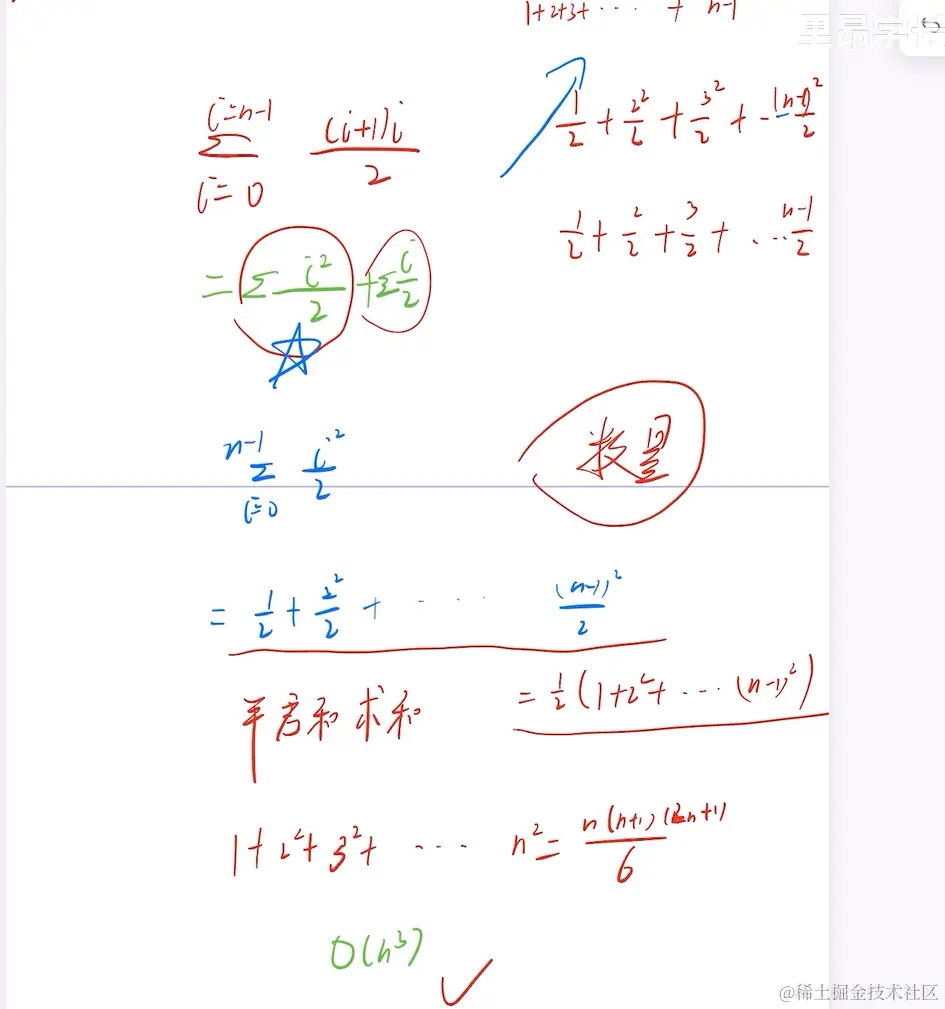 1+2+3+ ⋯ + n-1
i=n-1
∑ (i+1)i/2
i=0
1/2 + 2²/2 + 3²/2 + ⋯ (n-1)²/2
1/2 + 2/2 + 3/2 + ⋯ n-1/2
= ∑ i²/2 + ∑ i/2
数量
n-1
∑ i²/2
i=0
= 1/2 + 2²/2 + ⋯ (n-1)²/2
= 1/2 (1+2²+ ⋯ (n-1)²)
平方和 求和
1+2²+3²+ ⋯ n² = n(n+1)(2n+1)/6
O(n³)
@稀土掘金技术社区